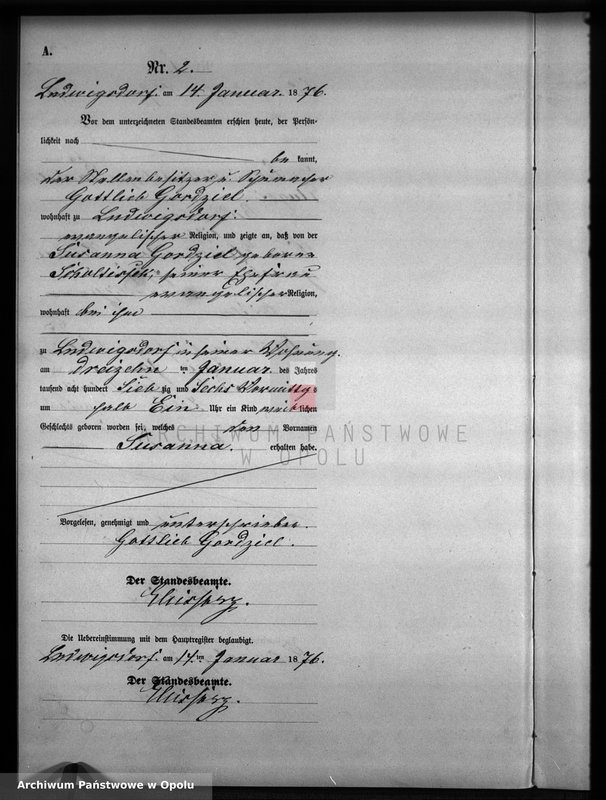 A.
Nr. 2.
Ludwigsdorf am 14. Januar 1876.
Vor dem unterzeichneten Standesbeamten erschien heute, der Persön-
lichkeit nach
be kannt,
der Stellenbesitzer u. Schumacher
Gottlieb Gordziel.
wohnhaft zu Ludwigsdorf.
evangelischer Religion, und zeigte an, daß von der
Susanna Gordziel geborene
seiner Ehefrau
evangelischer Religion,
wohnhaft bei ihm
zu Ludwigsdorf in seiner Wohnung.
am dreizehn ten Januar des Jahres
tausend acht hundert Sieb zig und Sechs Vormittgs
um halb Ein Uhr ein Kind weiblichen
Geschlechts geboren worden sei, welches den Vornamen
Susanna. erhalten habe.
Vorgelesen, genehmigt und unterschrieben.
Gottlieb Gordziel.
Der Standesbeamte.
Die Uebereinstimmung mit dem Hauptregister beglaubigt.
Ludwigsdorf am 14ten Januar 1876.
Der Standesbeamte.
ARCHIWUM PAŃSTWOWE
W OPOLU
Archiwum Państwowe w Opolu